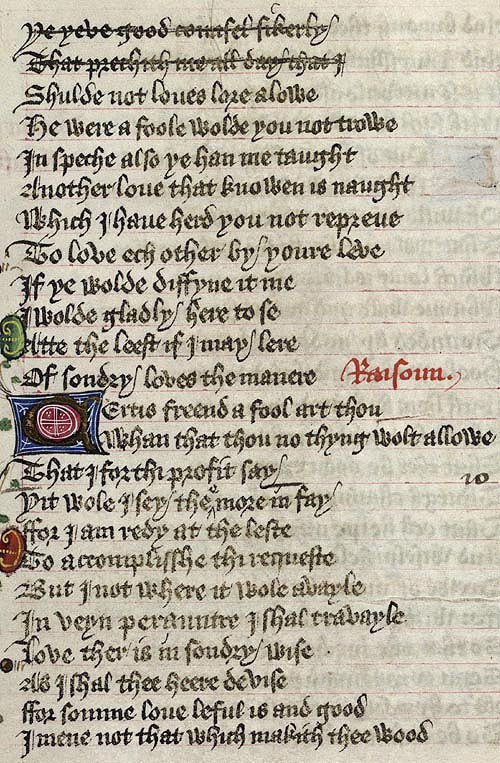 Ye yeve good counsel sikerly
That prechith me all day that I
Shulde not loues lore alowe
He were a foole wolde you not trowe
In speche also ye han me taught
Another loue that knowen is naught
Which I haue herd you not repreue
To love ech other by youre leve
If ye wolde diffyne it me
I wolde gladly here to se
Atte the leest if I may lere
Of sondry loves the manere Raisoun.
Certis freend a fool art thou
Whan that thou no thyng wolt allowe
That I for thi profit say
Yit wole I sey the more in fay
ffor I am redy at the leste
To accomplisshe thi requeste
But I not where it wole avayle
In veyn perauntre I shal travayle
Love ther is in sondry wise
As I shal thee heere devise
ffor somme loue leful is and good
I mene not that which makith thee wood